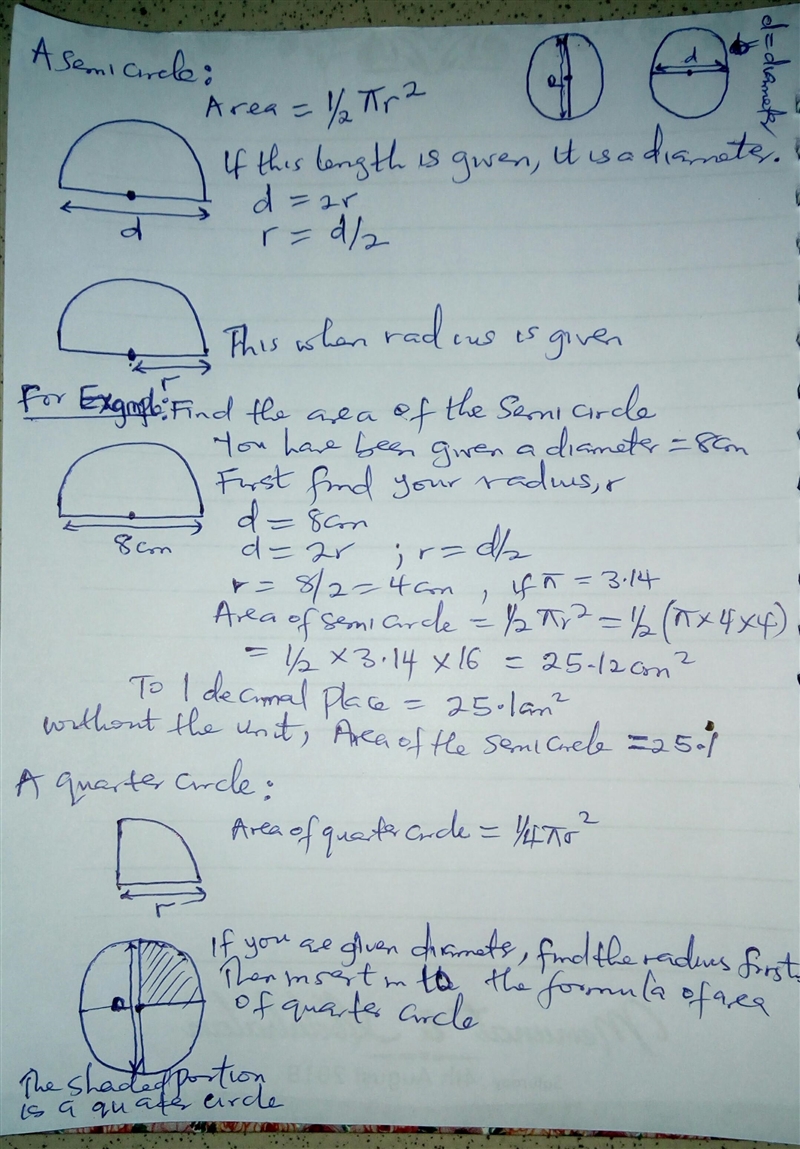 A semicircle:
Area = 1/2 πr²
d
d
d = diameter
If this length is given, it is a diameter.
d = 2r
r = d/2
d
This when radius is given
r
For Example: Find the area of the Semi circle
You have been given a diameter = 8cm
First find your radius, r
d = 8cm
8cm
d = 2r ; r = d/2
r = 8/2 = 4cm , if π = 3.14
Area of semi circle = 1/2 πr² = 1/2 (π×4×4)
= 1/2 × 3.14 × 16 = 25.12cm²
To 1 decimal place = 25.1cm²
without the unit, Area of the semi circle = 25.1
A quarter circle:
Area of quarter circle = 1/4πr²
r
If you are given diameter, find the radius first.
Then insert in to the formula of area
of quarter circle
The shaded portion
is a quater circle